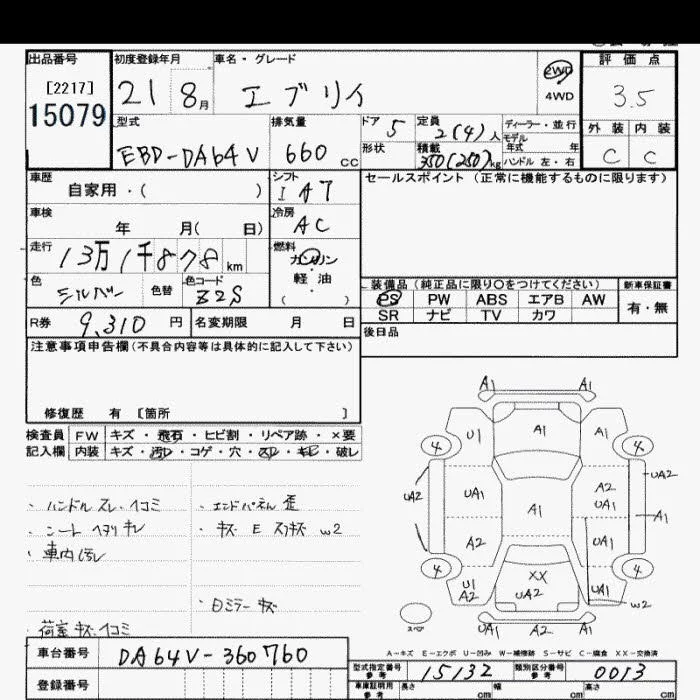 出品番号 初度登録年月 車名・グレード 2WD 評価点
[2217] 21 8月 エブリイ 4WD 3.5
15079
型式 排気量 ドア 5 定員 2(4)人 ディーラー・並行 外装 内装
モデル年式 年式
EBD-DA64V 660cc 形状 積載 350(250)kg ハンドル 左・右 C C
車歴 シフト セールスポイント(正常に機能するものに限ります)
自家用・( ) I AT
車検 冷房
年 月( 日) AC
走行 燃料
13万1千878km ガソリン
色 色替 色コード 軽油
シルバー Z2S ( )
装備品(純正品に限り○をつけてください) 新車保証書
PS PW ABS エアB AW 有・無
SR ナビ TV カワ
R券 9,310円 名変期限 月 日
後日品
注意事項申告欄(不具合内容等は具体的に記入して下さい)
修復歴 有 [箇所 ]
検査員 FW キズ・飛石・ヒビ割・リペア跡・×要
記入欄 内装 キズ・汚レ・コゲ・穴・スレ・キレ・破レ
・ハンドル スレ・イコミ
・シート ヘタリ キレ
・車内 汚レ
荷室 キズ・イコミ
・エンドパネル 歪
・キズ E スリキズ W2
・白ミラー キズ
A1 A1
U1 A1 A1
4 4
UA2 UA1 A1 A2 UA1 UA2
A1
A2 UA1
4 4
XX
U1 A2 UA2 UA1 W2
スペア UA1 A2 A1
A-キズ E-エクボ U-凹み W-補修跡 S-サビ C-腐食 XX-交換済
車台番号 DA64V-360760
登録番号
型式指定番号 参考 15132 類別区分番号 参考 0013
車庫証明用 参考 長さ cm 幅 cm 高さ cm